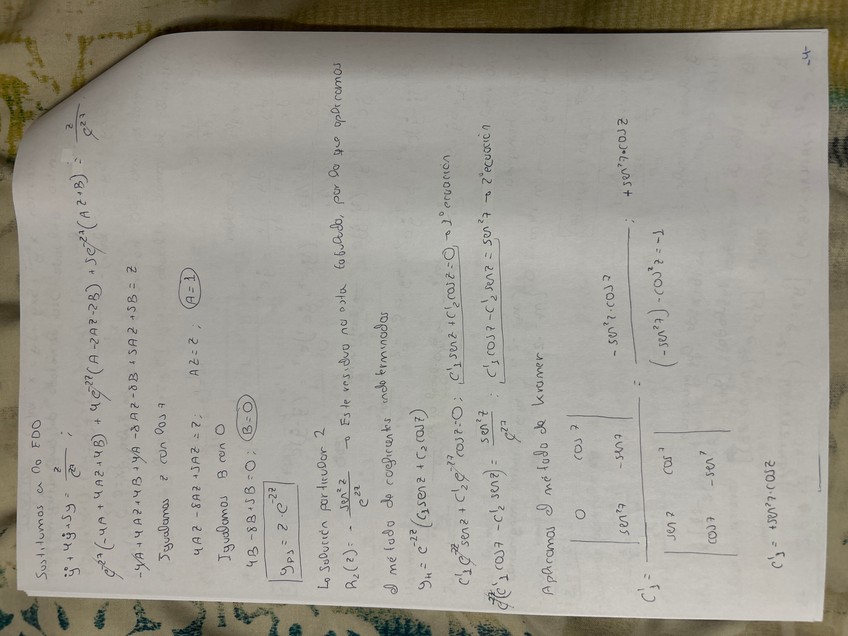 Sustituimos en la EDO
ÿ + 4ẏ + 5y = z/e^{2z} ;
e^{-2z}(-4A + 4Az + 4B) + 4e^{-2z}(A - 2Az - 2B) + 5e^{-2z}(Az + B) = z/e^{2z}
-4A + 4Az + 4B + 4A - 8Az - 8B + 5Az + 5B = z
Igualamos z con las z
4Az - 8Az + 5Az = z ; Az = z ; A = 1
Igualamos B con 0
4B - 8B + 5B = 0 ; B = 0
y_{P1} = z · e^{-2z}
La solución particular 2
R_2(z) = - sen^2z/e^{2z} → Este residuo no esta tabulado, por lo que aplicamos
el método de coeficientes indeterminados
y_H = e^{-2z}(c_1 senz + c_2 cosz)
c'_1 e^{-2z} senz + c'_2 e^{-2z} cosz = 0 ; c'_1 senz + c'_2 cosz = 0 → 1º ecuación
e^{-2z}(c'_1 cosz - c'_2 senz) = sen^2z/e^{2z} ; c'_1 cosz - c'_2 senz = sen^2z → 2º ecuación
Aplicamos el método de Kramer
c'_1 = |0 cosz ; sen^2z -senz| / |senz cosz ; cosz -senz| = -sen^2z·cosz / (-sen^2z) - cos^2z = -1 ; +sen^2z·cosz
c'_1 = +sen^2z·cosz
-4-